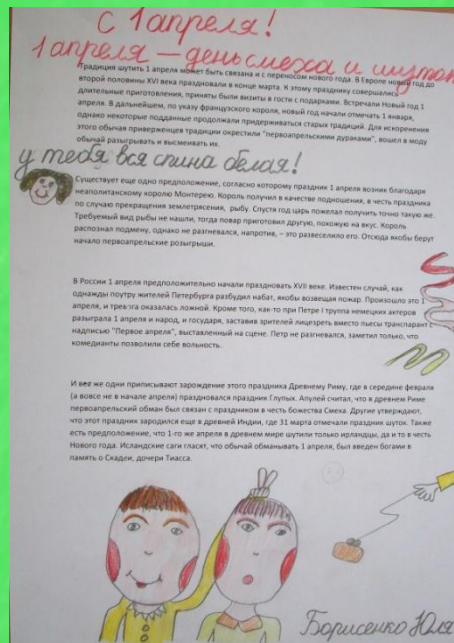 С 1 апреля!
1 апреля — день смеха и шуток
Традиция шутить 1 апреля может быть связана и с переносом нового года. В Европе новый год до
второй половины XVI века праздновали в конце марта. К этому празднику совершались
длительные приготовления, приняты были визиты в гости с подарками. Встречали Новый год 1
апреля. В дальнейшем, по указу французского короля, новый год начали отмечать 1 января,
однако некоторые подданные продолжали придерживаться старых традиций. Для искоренения
этого обычая приверженцев традиции окрестили "первоапрельскими дураками", вошел в моду
обычай разыгрывать и высмеивать их.
у тебя вся спина белая!
Существует еще одно предположение, согласно которому праздник 1 апреля возник благодаря
неаполитанскому королю Монтерею. Король получил в качестве подношения, в честь праздника
по случаю прекращения землетрясения, рыбу. Спустя год царь пожелал получить точно такую же.
Требуемый вид рыбы не нашли, тогда повар приготовил другую, похожую на вкус. Король
распознал подмену, однако не разгневался, напротив, – это развеселило его. Отсюда якобы берут
начало первоапрельские розыгрыши.
В России 1 апреля предположительно начали праздновать XVII веке. Известен случай, как
однажды поутру жителей Петербурга разбудил набат, якобы возвещая пожар. Произошло это 1
апреля, и тревога оказалась ложной. Кроме того, как-то при Петре I труппа немецких актеров
разыграла 1 апреля и народ, и государя, заставив зрителей лицезреть вместо пьесы транспарант с
надписью "Первое апреля", выставленный на сцене. Петр не разгневался, заметил только, что
комедианты позволили себе вольность.
И все же одни приписывают зарождение этого праздника Древнему Риму, где в середине февраля
(а вовсе не в начале апреля) праздновался праздник Глупых. Апулей считал, что в древнем Риме
первоапрельский обман был связан с праздником в честь божества Смеха. Другие утверждают,
что этот праздник зародился еще в древней Индии, где 31 марта отмечали праздник шуток. Также
есть предположение, что 1-го же апреля в древнем мире шутили только ирландцы, да и то в честь
Нового года. Исландские саги гласят, что обычай обманывать 1 апреля, был введен богами в
память о Скадеи, дочери Тиасса.
Борисенко Юля